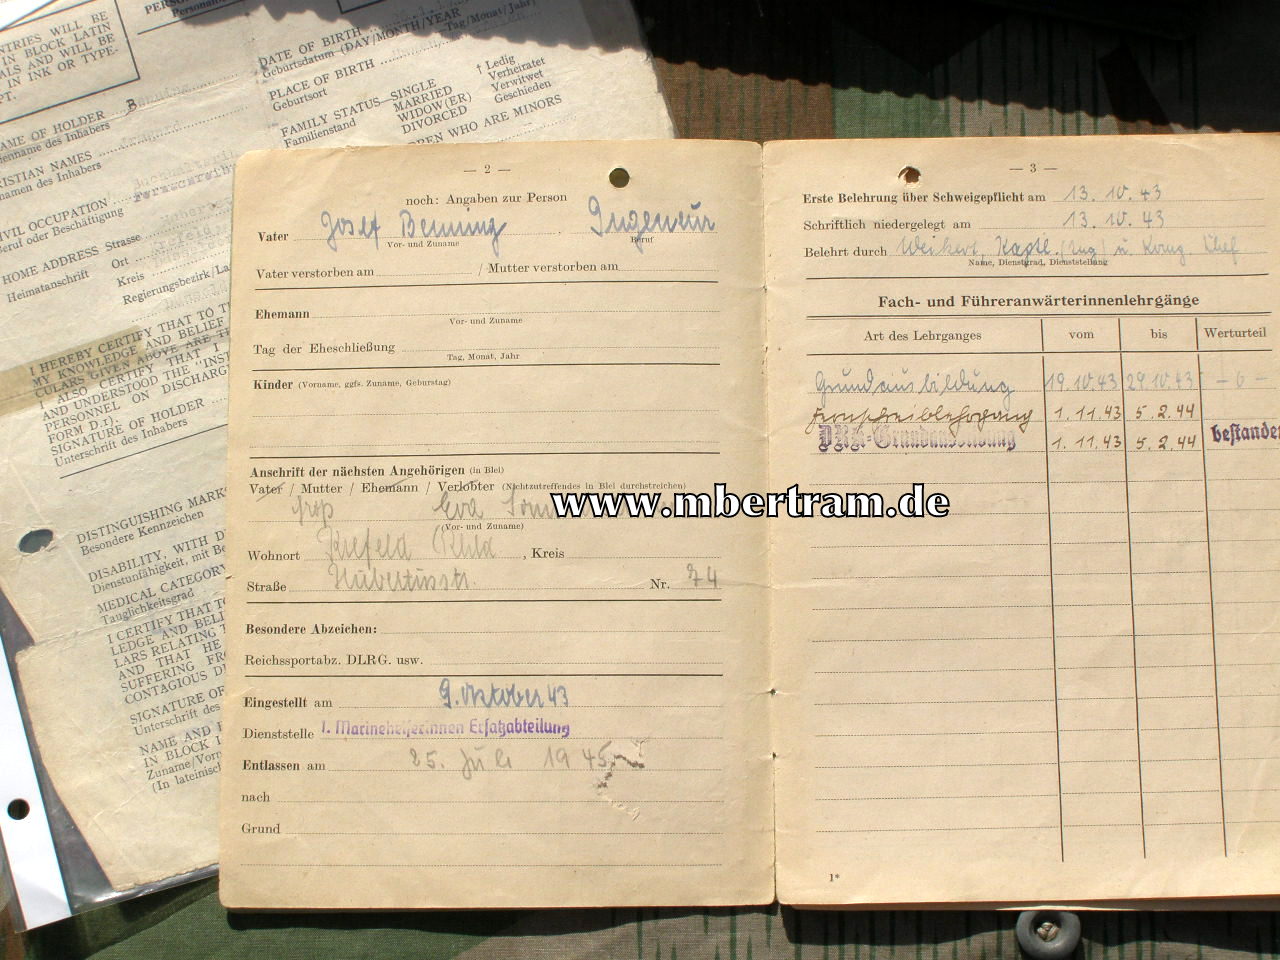 PERS
ENTRIES WILL BE
IN BLOCK LATIN
ALS AND WILL BE
IN INK OR TYPE-
PT.
NAME OF HOLDER
enname des Inhabers
RISTIAN NAMES
namen des Inhabers
IVIL OCCUPATION
Beruf oder Beschäftigung
HOME ADDRESS Strasse
Heimatanschrift Ort
Kreis
Regierungsbezirk/La
DATE OF BIRTH
Geburtsdatum (DAY/MONTH/YEAR
Tag/Monat/Jahr)
PLACE OF BIRTH
Geburtsort
FAMILY STATUS—SINGLE † Ledig
MARRIED Verheiratet
Familienstand WIDOW(ER) Verwitwet
DIVORCED Geschieden
REN WHO ARE MINORS
I HEREBY CERTIFY THAT TO T
MY KNOWLEDGE AND BELIEF
CULARS GIVEN ABOVE ARE T
I ALSO CERTIFY THAT I
AND UNDERSTOOD THE "INST
PERSONNEL ON DISCHARG
FORM D.1).
SIGNATURE OF HOLDER
Unterschrift des Inhabers
DISTINGUISHING MARK
Besondere Kennzeichen
DISABILITY, WITH D
Dienstunfähigkeit, mit Be
MEDICAL CATEGORY
Tauglichkeitsgrad
I CERTIFY THAT TO
LEDGE AND BELI
LARS RELATING T
AND THAT HE
SUFFERING FR
CONTAGIOUS D
SIGNATURE OF
Unterschrift des
NAME AND
IN BLOCK
Zuname/Vorn
(In lateinisc
— 2 —
noch: Angaben zur Person
Vater Josef Benning Ingenieur
Vor- und Zuname Beruf
Vater verstorben am / Mutter verstorben am
Ehemann
Vor- und Zuname
Tag der Eheschließung
Tag, Monat, Jahr
Kinder (Vorname, ggfs. Zuname, Geburtstag)
Anschrift der nächsten Angehörigen (in Blei)
Vater / Mutter / Ehemann / Verlobter (Nichtzutreffendes in Blei durchstreichen)
Eva
(Vor- und Zuname)
Wohnort Krefeld , Kreis
Straße Hubertusstr. Nr. 74
Besondere Abzeichen:
Reichssportabz. DLRG. usw.
Eingestellt am 9. Oktober 43
Dienststelle 1. Marinehelferinnen Ersatzabteilung
Entlassen am 25. Juli 1945
nach
Grund
— 3 —
Erste Belehrung über Schweigepflicht am 13. 10. 43
Schriftlich niedergelegt am 13. 10. 43
Belehrt durch Weikert, Kaptl. (Ing) u. Komp. Chef
Name, Dienstgrad, Dienststellung
Fach- und Führeranwärterinnenlehrgänge
Art des Lehrganges vom bis Werturteil
Grundausbildung 19.10.43 29.10.43 - 6 -
Fernschreiblehrgang 1. 11. 43 5. 2. 44
DRK-Grundausbildung 1. 11. 43 5. 2. 44 bestanden
1*
www.mbertram.de